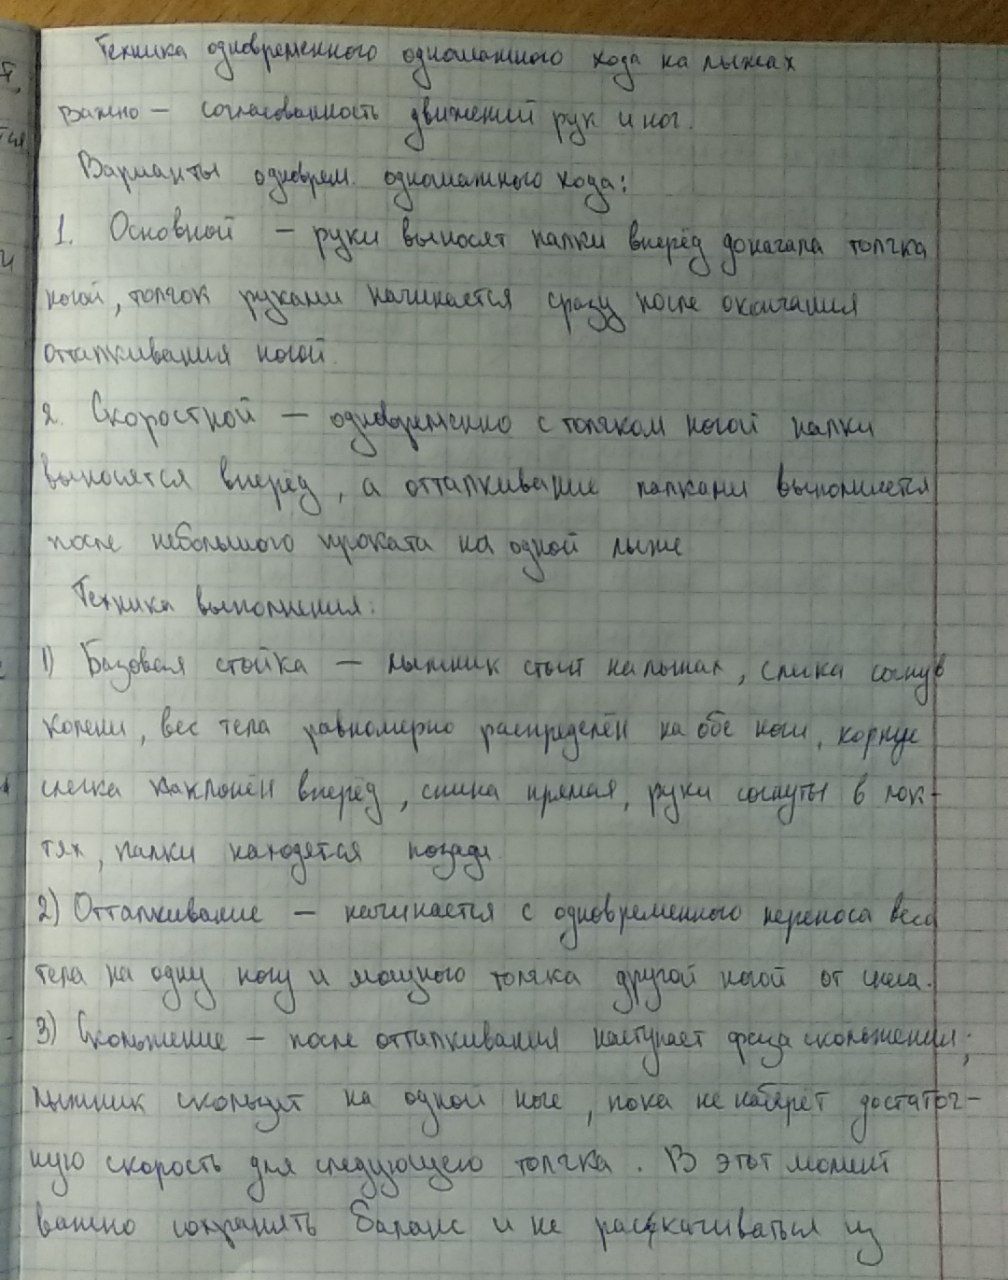 Техника одновременного одношажного хода на лыжах
Важно — согласованность движений рук и ног.
Варианты одноврем. одношажного хода:
1. Основной — руки выносят палки вперёд до начала толчка
ногой, толчок руками начинается сразу после окончания
отталкивания ногой.
2. Скоростной — одновременно с толчком ногой палки
выносятся вперёд, а отталкивание палками выполняется
после небольшого проката на одной лыже
Техника выполнения:
1) Базовая стойка — лыжник стоит на лыжах, слегка согнув
колени, вес тела равномерно распределён на обе ноги, корпус
слегка наклонён вперёд, спина прямая, руки согнуты в лок-
тях, палки находятся позади.
2) Отталкивание — начинается с одновременного переноса веса
тела на одну ногу и мощного толчка другой ногой от снега.
3) Скольжение — после отталкивания наступает фаза скольжения;
лыжник скользит на одной ноге, пока не наберёт достаточ-
ную скорость для следующего толчка. В этот момент
важно сохранять баланс и не раскачиваться из